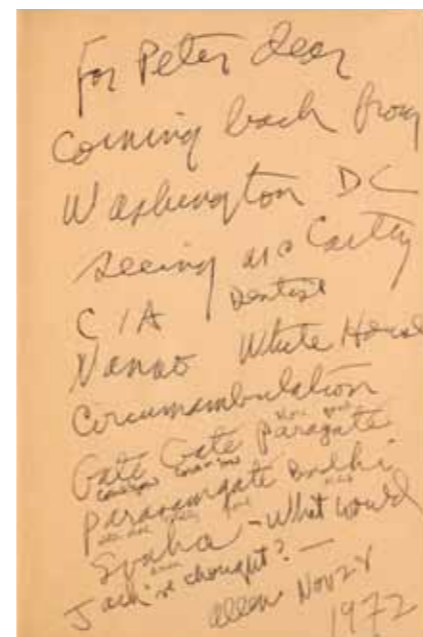 For Peter dear
Coming back from
Washington DC
seeing McCarthy
CIA Dentist
Nanao White House
Circumambulation
Gate Gate Paragate
Parasamgate Bodhi
Svaha – What would
Jack've thought? —
Allen Nov 28
1972